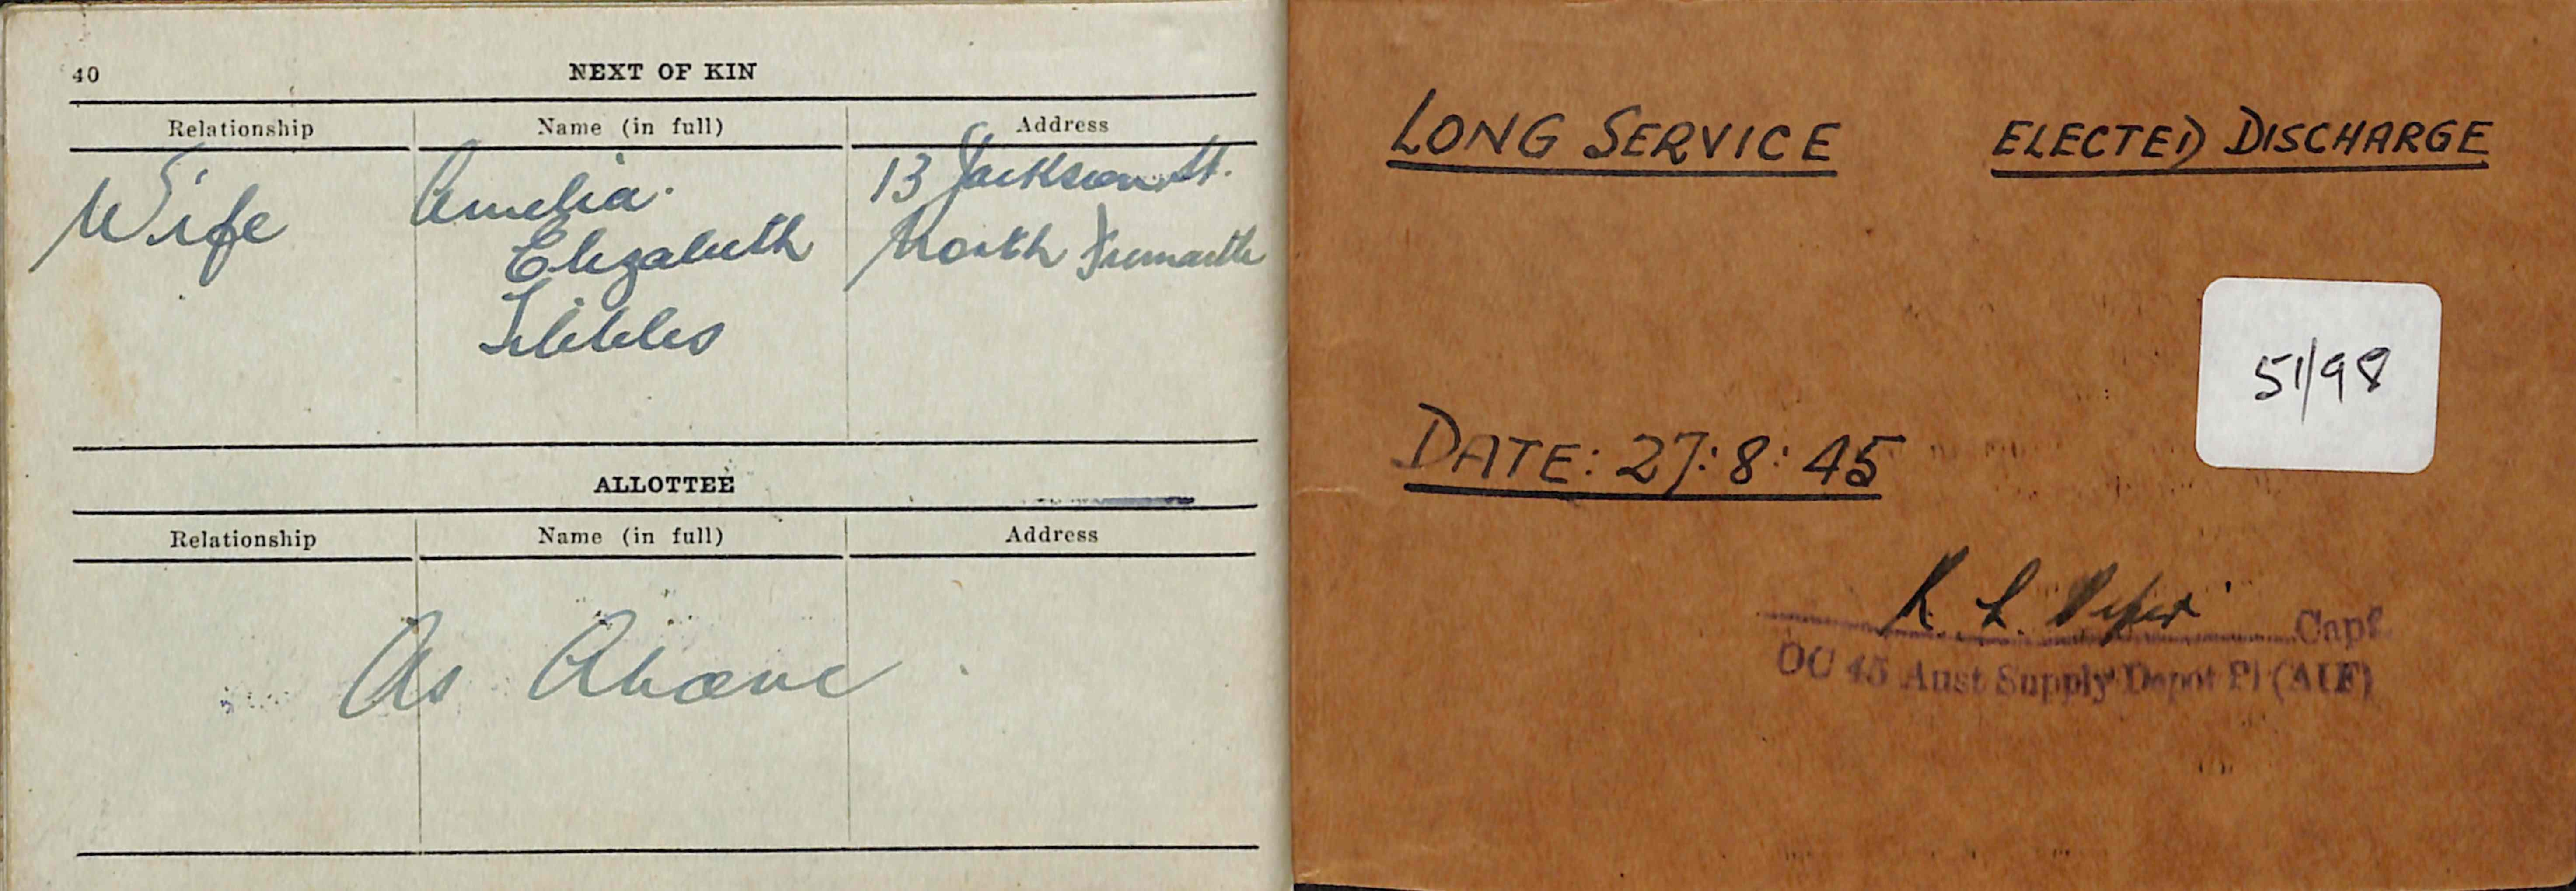 40
NEXT OF KIN
Relationship Name (in full) Address
Wife Amelia 13 Jackson St.
Elizabeth North Fremantle
Tibbles
ALLOTTEE
Relationship Name (in full) Address
As Above
LONG SERVICE ELECTED DISCHARGE
51/98
DATE: 27:8:45
R. L. Capt
OC 45 Aust Supply Depot Pl (AIF)